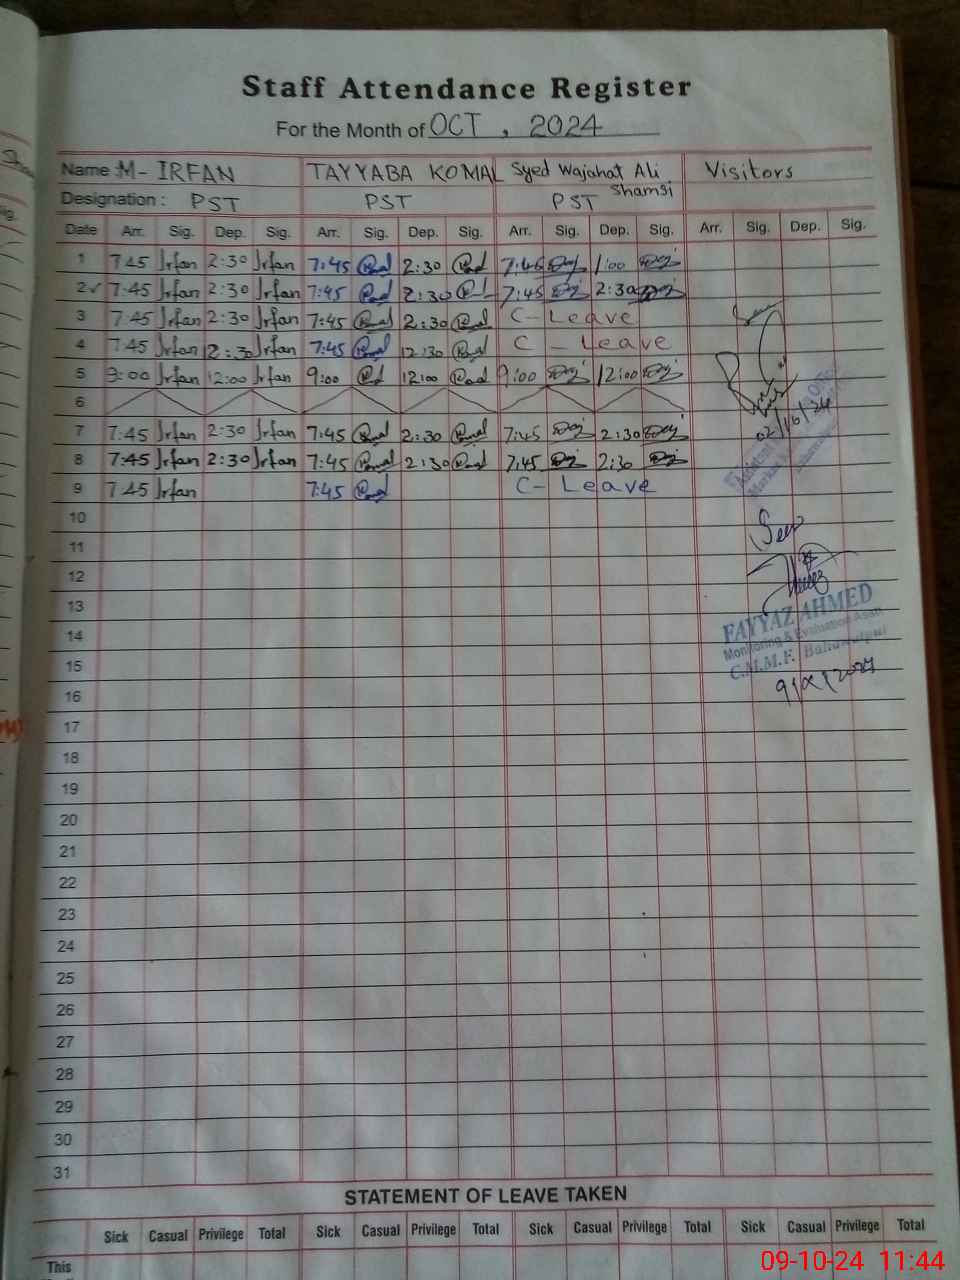 Staff Attendance Register
For the Month of OCT , 2024
Name : M- IRFAN TAYYABA KOMAL Syed Wajahat Ali Shamsi Visitors
Designation : PST PST PST
Date Arr. Sig. Dep. Sig. Arr. Sig. Dep. Sig. Arr. Sig. Dep. Sig. Arr. Sig. Dep. Sig.
1 7:45 Irfan 2:30 Irfan 7:45 2:30 7:45 1:00
2 ✓ 7:45 Irfan 2:30 Irfan 7:45 2:30 7:45 2:30
3 7:45 Irfan 2:30 Irfan 7:45 2:30 C- Leave
4 7:45 Irfan 12:30 Irfan 7:45 12:30 C - Leave
5 9:00 Irfan 12:00 Irfan 9:00 12:00 9:00 12:00
6
7 7:45 Irfan 2:30 Irfan 7:45 2:30 7:45 2:30
8 7:45 Irfan 2:30 Irfan 7:45 2:30 7:45 2:30
9 7:45 Irfan 7:45 C- Leave
02/10/24
10
11
Seen
12
13
FAYYAZ AHMED
14
Monitoring & Evaluation Asstt
15
C.M.M.F. Bahawalpur
16
9/10/2024
17
18
19
20
21
22
23
24
25
26
27
28
29
30
31
STATEMENT OF LEAVE TAKEN
Sick Casual Privilege Total Sick Casual Privilege Total Sick Casual Privilege Total Sick Casual Privilege Total
This
09-10-24 11:44